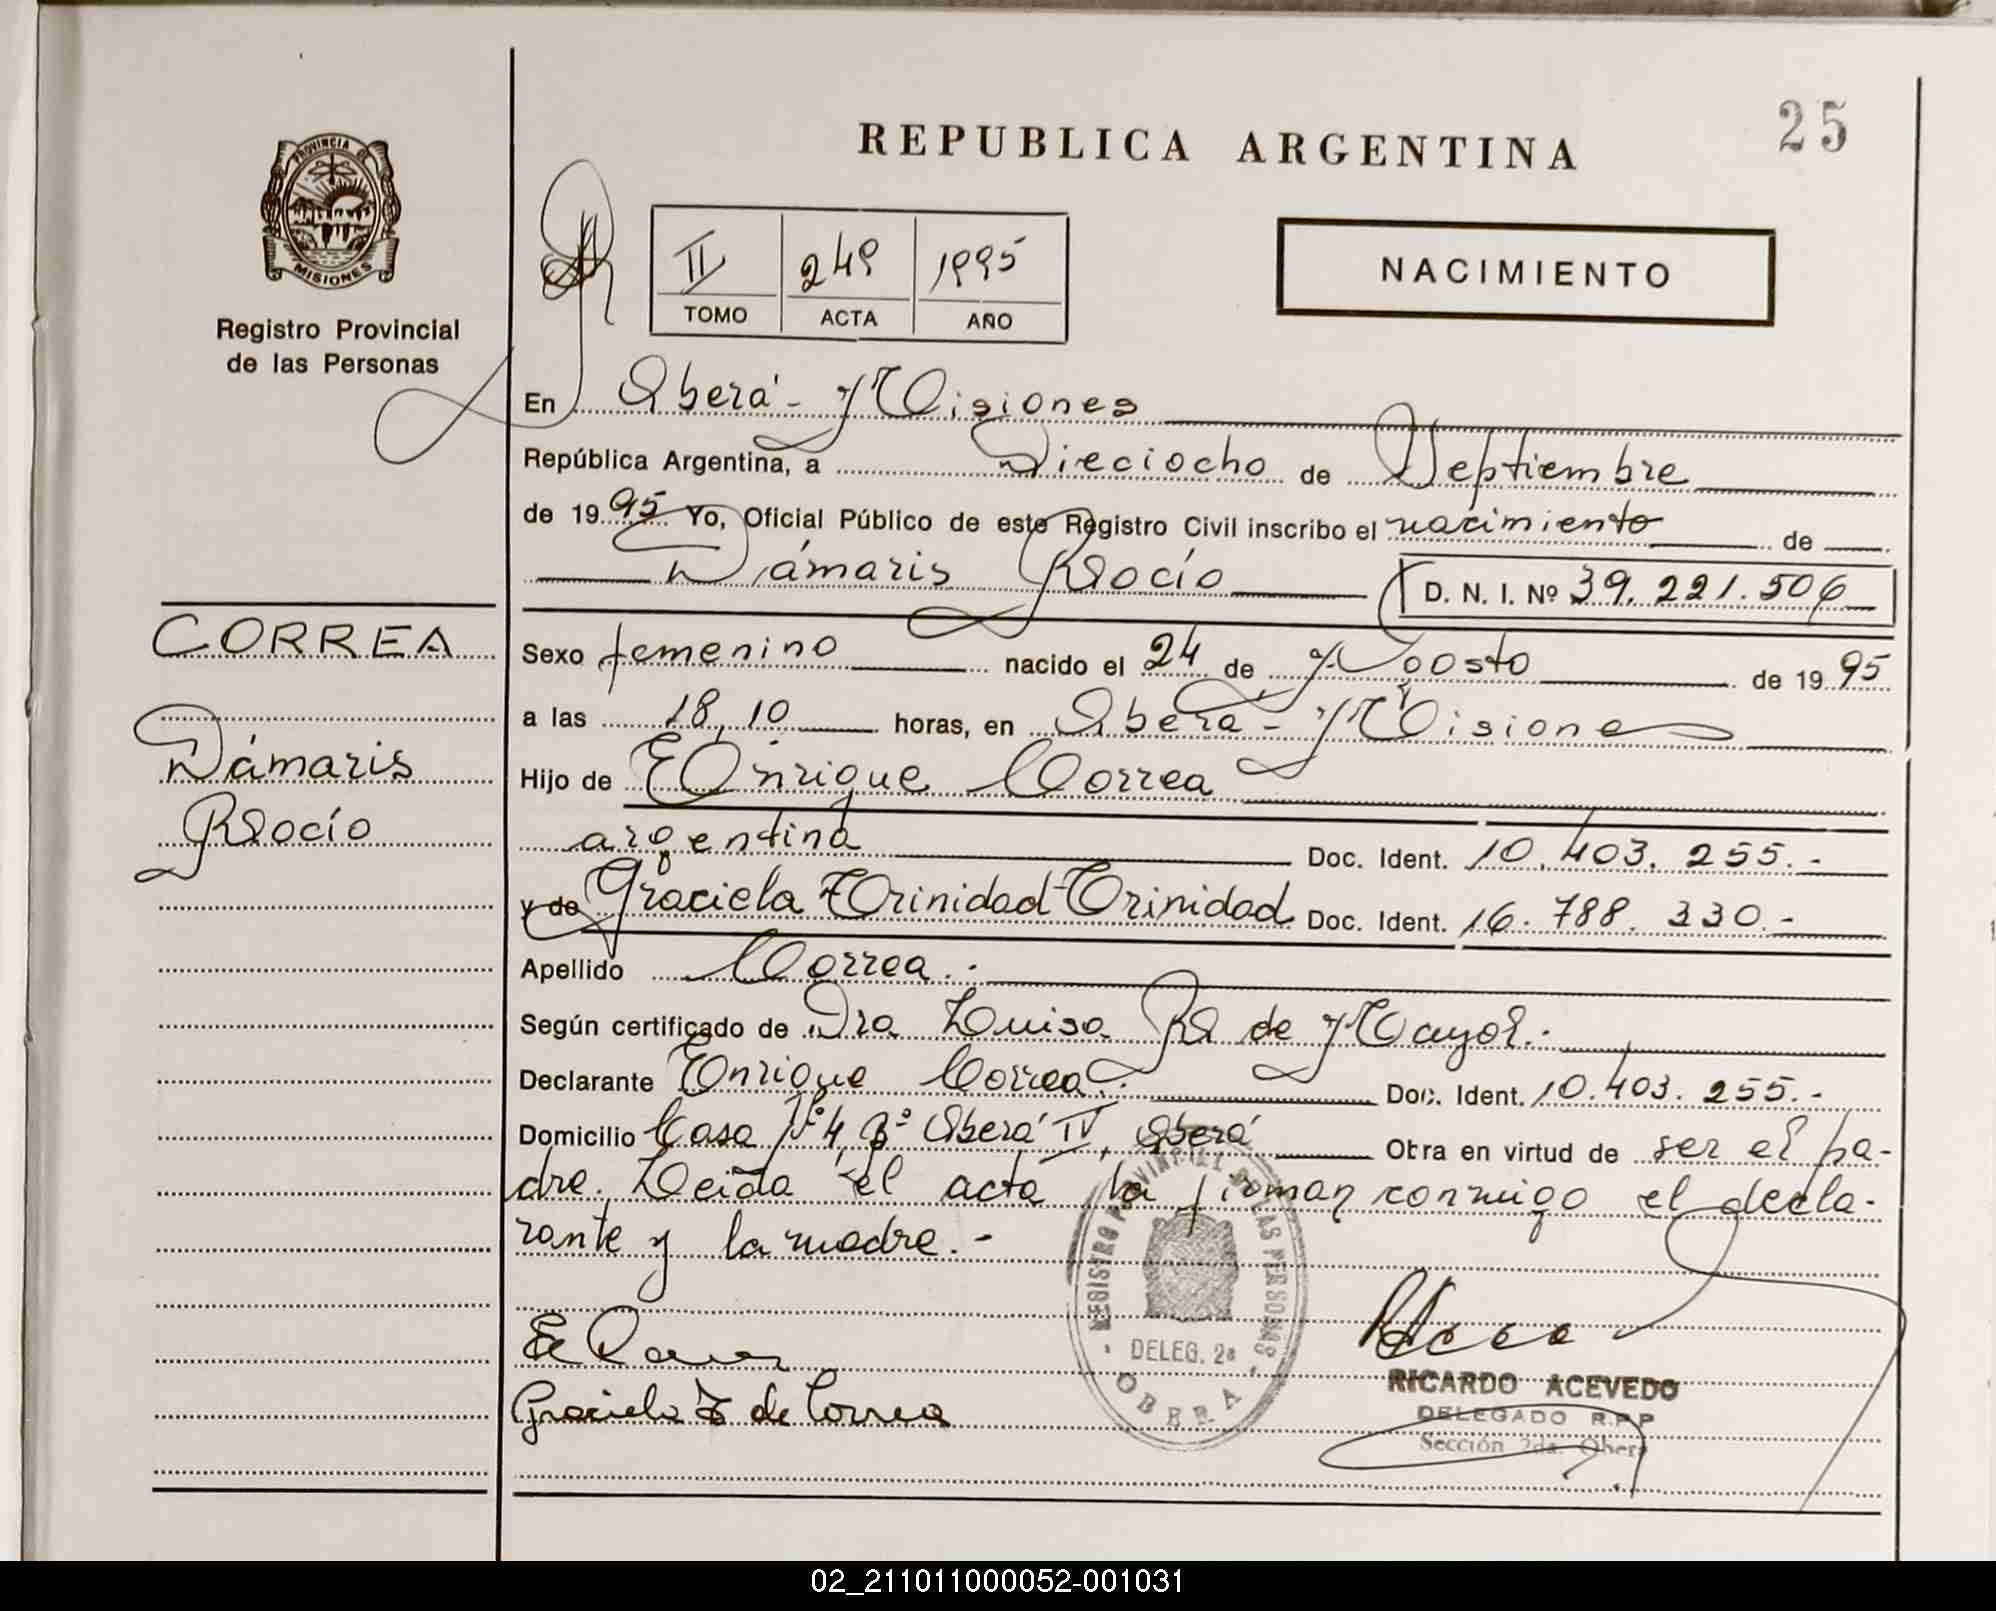 REPUBLICA ARGENTINA
25
PROVINCIA DE
MISIONES
Registro Provincial
de las Personas
II 249 1995
TOMO ACTA AÑO
NACIMIENTO
En Oberá - Misiones
República Argentina, a Dieciocho de Septiembre
de 1995 Yo, Oficial Público de este Registro Civil inscribo el nacimiento de
Dámaris Rocío D. N. I. Nº 39.221.506
CORREA
Dámaris
Rocío
Sexo femenino nacido el 24 de Agosto de 1995
a las 18,10 horas, en Oberá - Misiones
Hijo de Enrique Correa
argentina Doc. Ident. 10.403.255.-
y de Graciela Trinidad Trinidad Doc. Ident. 16.788.330.-
Apellido Correa.-
Según certificado de Dra Luisa R de Mayol.-
Declarante Enrique Correa.- Doc. Ident. 10.403.255.-
Domicilio Casa Nº 4, Bº Oberá IV, Oberá Obra en virtud de ser el pa-
dre. Leída el acta la firman conmigo el decla-
rante y la madre.-
REGISTRO PROVINCIAL DE LAS PERSONAS
DELEG. 2a
OBERA
Graciela T de Correa
RICARDO ACEVEDO
DELEGADO R.P.P
Sección 2da. Oberá
02_211011000052-001031